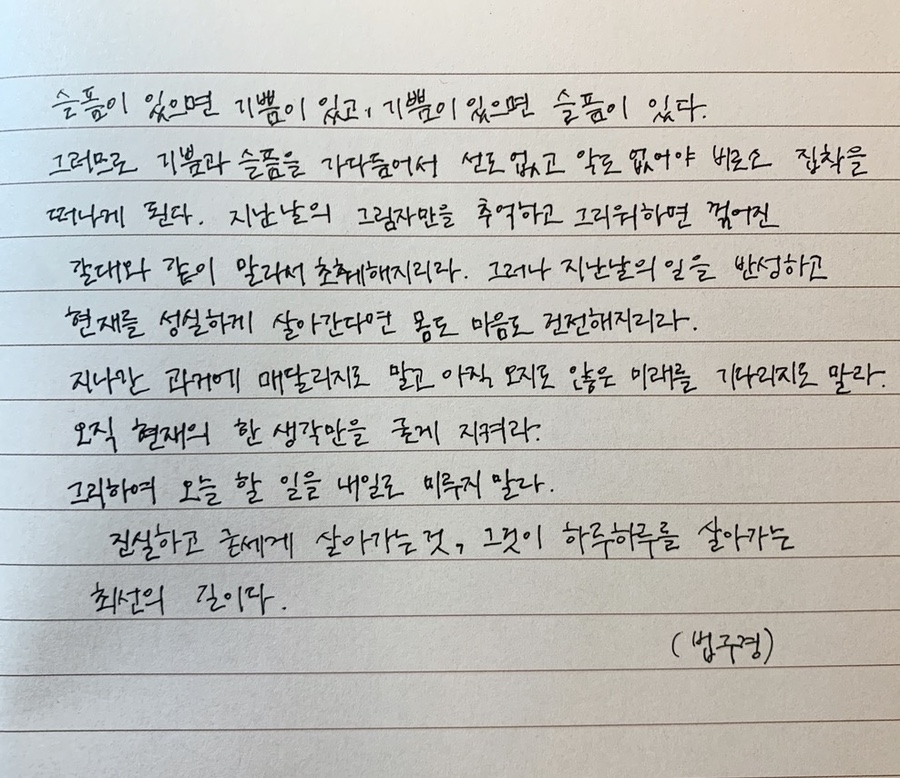 슬픔이 있으면 기쁨이 있고, 기쁨이 있으면 슬픔이 있다.
그러므로 기쁨과 슬픔을 가다듬어서 선도 없고 악도 없어야 비로소 집착을
떠나게 된다. 지난날의 그림자만을 추억하고 그리워하면 꺾어진
갈대와 같이 말라서 초췌해지리라. 그러나 지난날의 일을 반성하고
현재를 성실하게 살아간다면 몸도 마음도 건전해지리라.
지나간 과거에 매달리지도 말고 아직 오지도 않은 미래를 기다리지도 말라.
오직 현재의 한 생각만을 굳게 지켜라.
그리하여 오늘 할 일을 내일로 미루지 말라.
진실하고 굳세게 살아가는 것, 그것이 하루하루를 살아가는
최선의 길이다.
(법구경)